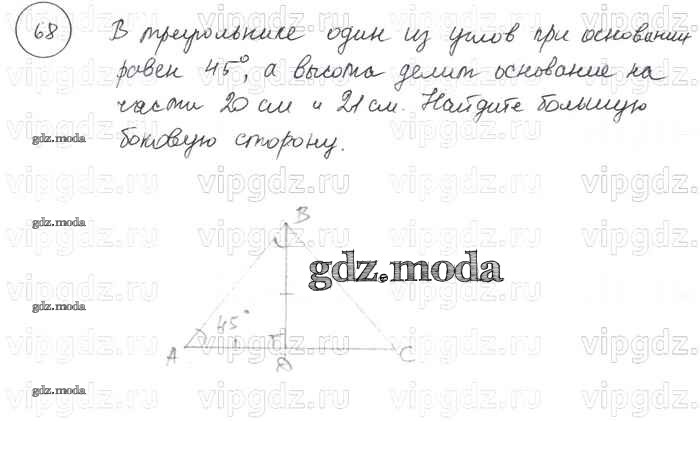 68
В треугольнике один из углов при основании
равен 45°, а высота делит основание на
части 20 см и 21 см. Найдите большую
боковую сторону.
gdz.moda
vipgdz.ru vipgdz.ru vipgdz.ru vipgdz.ru
gdz.moda
B
gdz.moda
gdz.moda
45°
A
D
C
gdz.moda